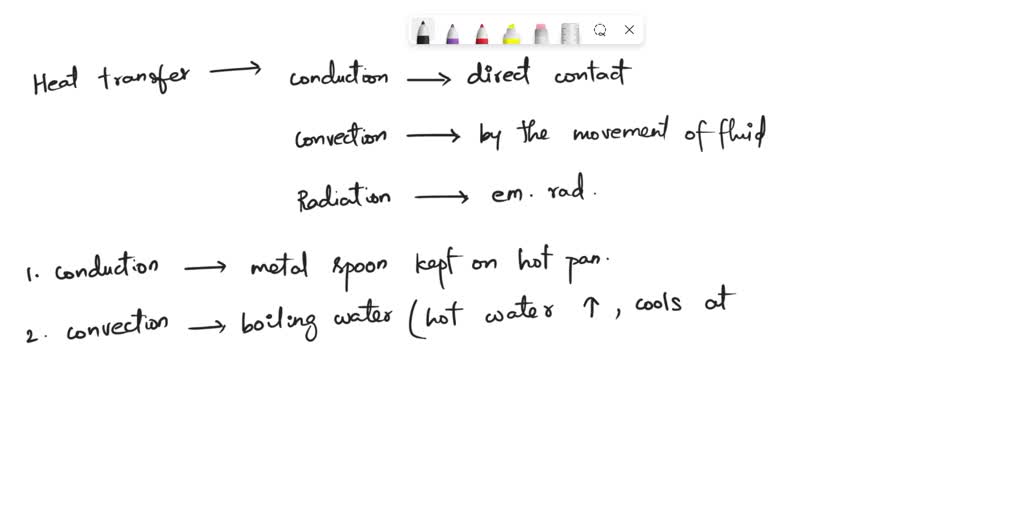 Heat transfer → conduction → direct contact
convection → by the movement of fluid
Radiation → em. rad.
1. conduction → metal spoon kept on hot pan.
2. convection → boiling water (hot water ↑, cools at